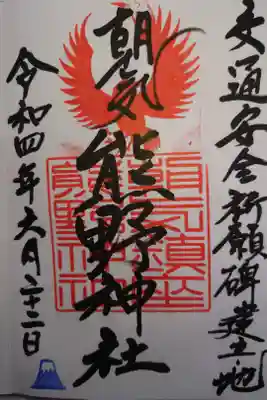 交通安全祈願碑建立地
朝気熊野神社
令和四年六月二十二日